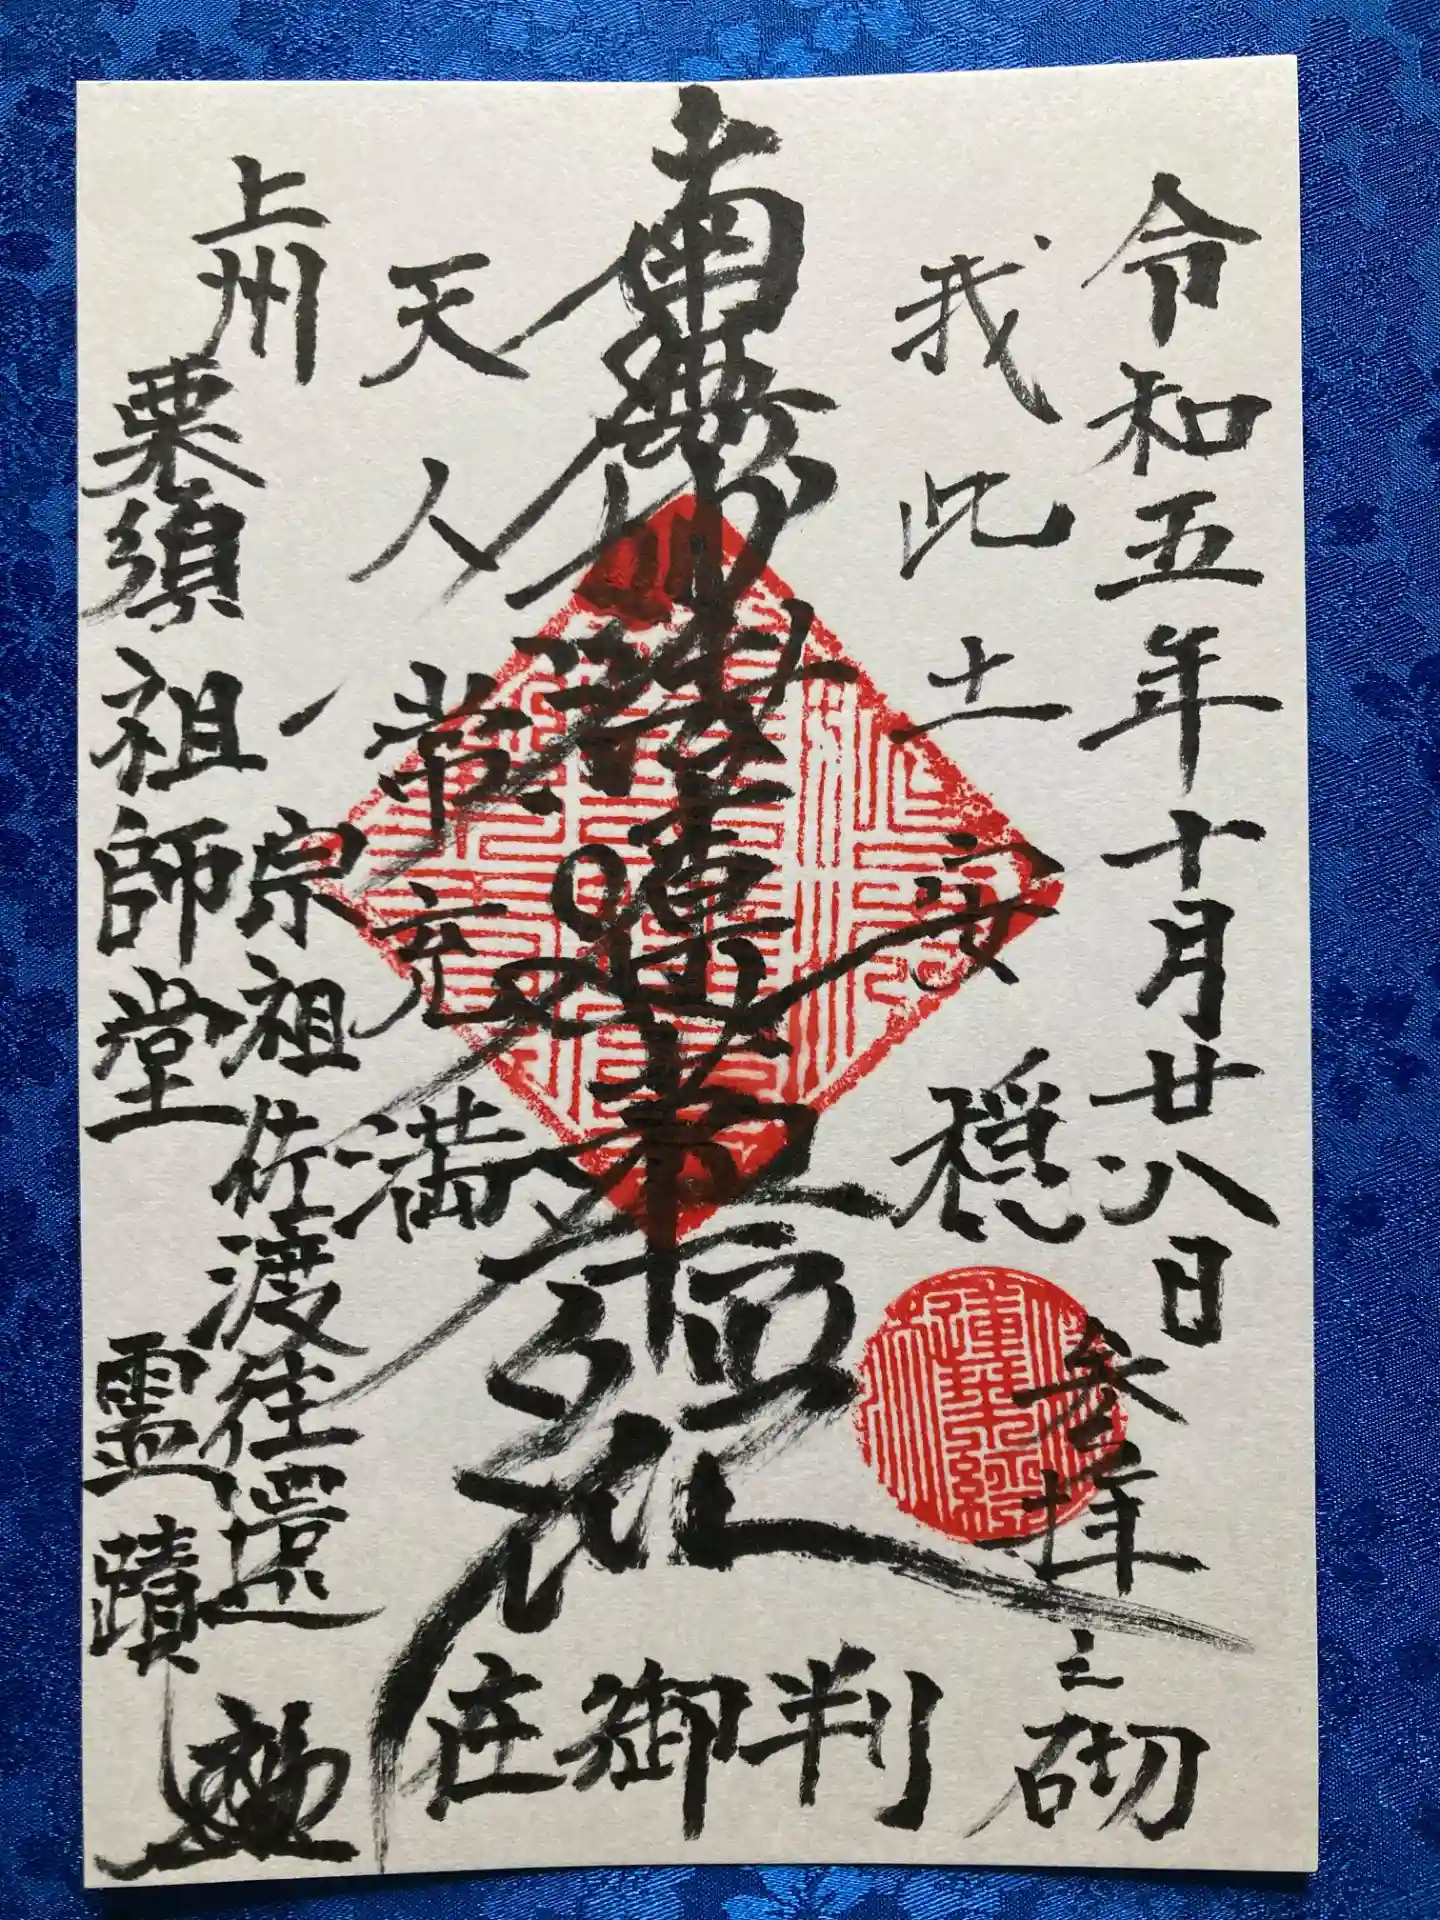 令和五年十月廿八日参拝之砌
我此土安穏
南無妙法蓮華経
天人常充満
宗祖佐渡往還
上州粟須祖師堂霊蹟
在御判